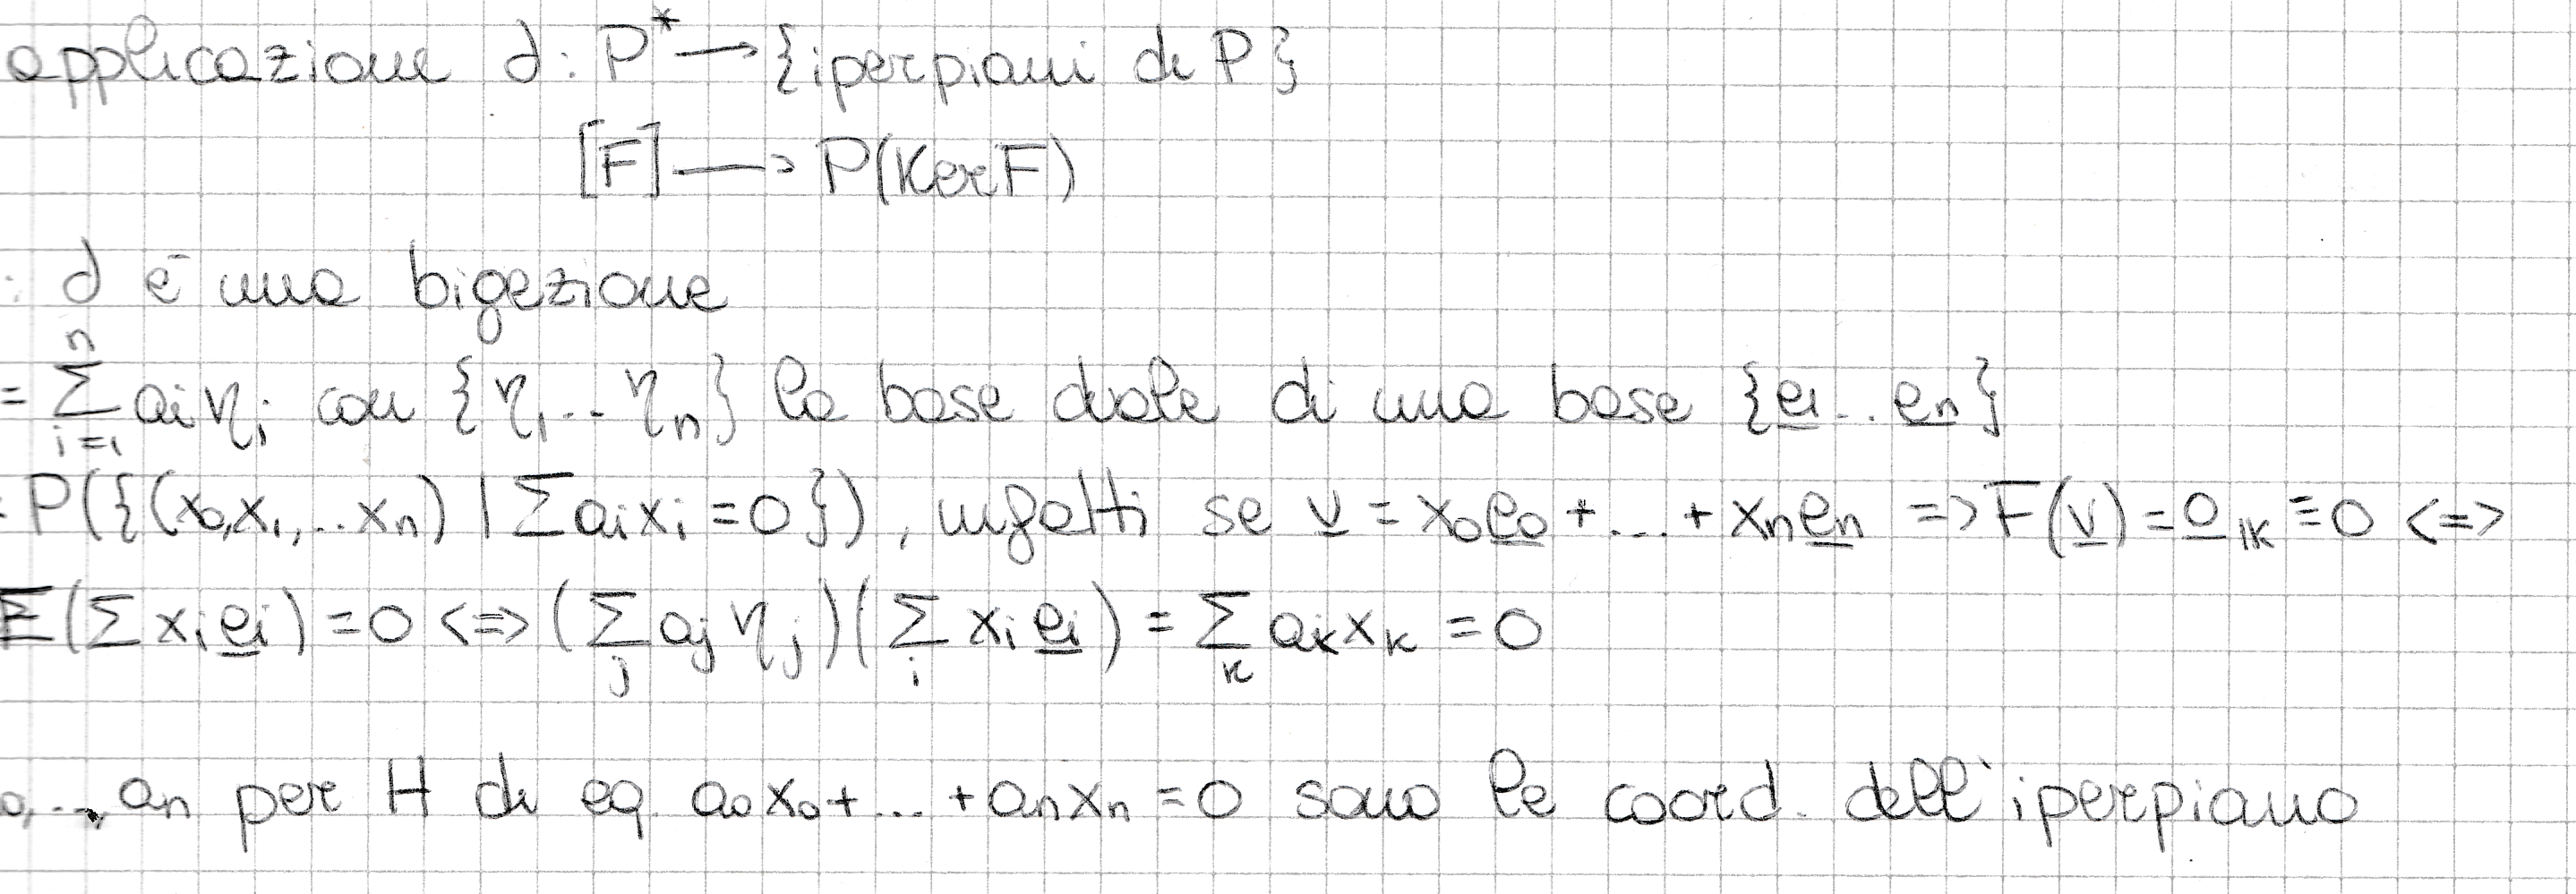 applicazione δ: P* → {iperpiani di P}
[F] → P(KerF)
: δ è una bigezione
= ∑_{i=1}^{n} aᵢηᵢ con {η₁...ηₙ} la base duale di una base {e₁...eₙ}
: P({(x₀,x₁,...xₙ) | ∑aᵢxᵢ=0}), infatti se v = x₀e₀+...+xₙeₙ => F(v)=0_𝕂=0 <=>
F(∑xᵢeᵢ)=0 <=> (∑_j a_jη_j)(∑_i xᵢeᵢ) = ∑_k a_kx_k = 0
₀,..., aₙ per H di eq. a₀x₀+...+aₙxₙ=0 sono le coord. dell'iperpiano